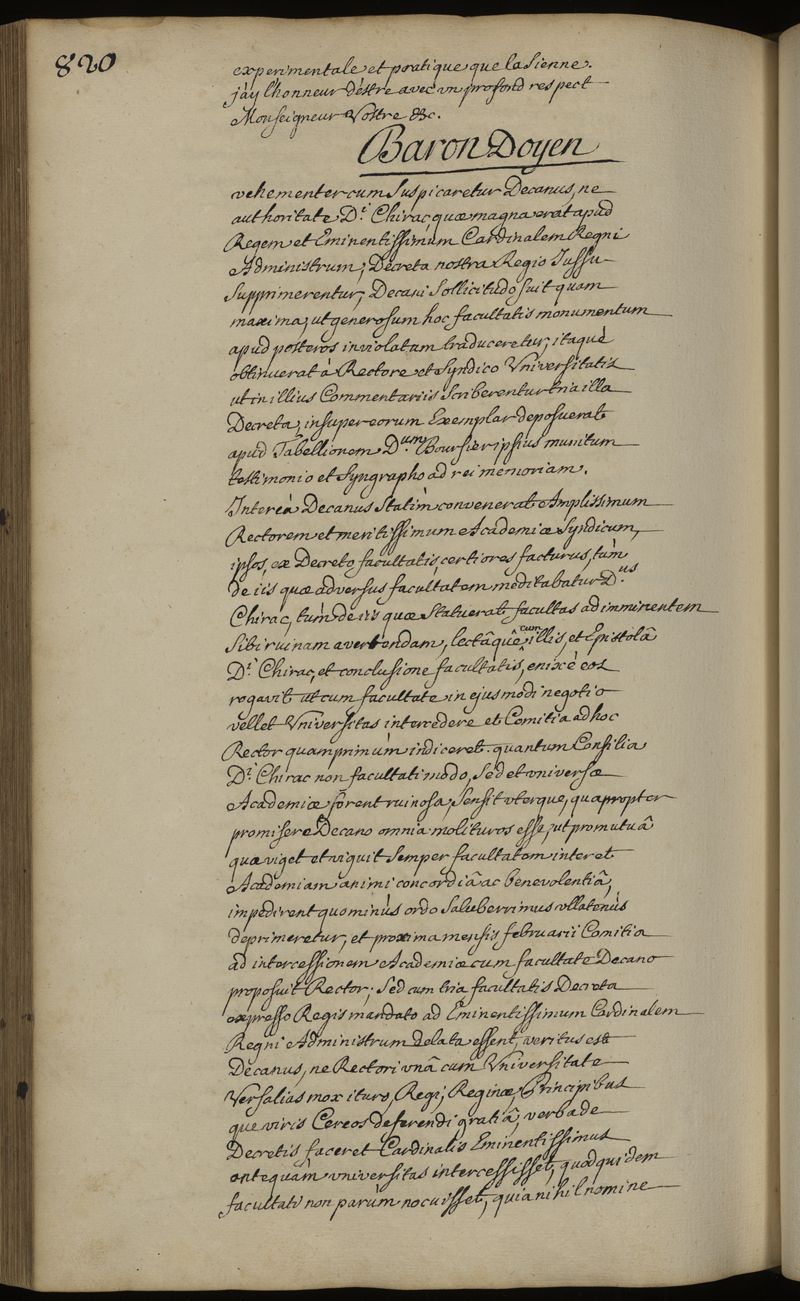 820
experimentale et pratique que la Sienne.
j'ay l'honneur d'estre avec un profond respect
Monseigneur Vostre &c.
Baron Doyen
vehementer cum Suspicaretur Decanus, ne
authoritate D.i Chirac quæ magna erat apud
Regem et Eminentissimum Cardinalem Regni
Administrum, Decreta nostra Regio Jussu
Supprimerentur, Decani Sollicitudo fuit quam
maxima, ut generosum hoc facultatis monumentum
apud posteros inviolatum traduceretur; itaque
obtinuerat à Rectore et Syndico Universitatis
ut in illius Commentariis Scriberentur tria illa
Decreta, insuper eorum Exemplar deposuerat
apud Tabellionem D.um Boursier ipsius munitum
testimonio et Syngrapho ad rei memoriam.
Intereà Decanus Statìm convenerat Amplissimum
Rectorem et meritissimum Academiæ Syndicum,
ipsos, ex Decreto facultatis certiores facturus, tùm
de iis quæ adversus facultatem meditabatur D.us
Chirac, tùm de iis quæ Statuerat facultas ad imminentem
Sibi ruinam avertendam, lectâque cum illis, et Epistolâ
D.i Chirac, et conclusione facultatis, enixè eos
rogavit ut cum facultate in ejusmodi negotio
vellet Universitas intercedere et Comitia ad hoc
Rector quamprimùm indiceret. quantum Consilia
D.i Chirac non facultati modo, Sed et universæ
Academiæ forent ruinosa, Sensit uterque, quapropter
promisere Decano omnia molituros esse, ut pro mutuâ
quæ viget et viguit Semper facultatem inter et
Academiam animi concordiâ ac benevolentiâ,
impedirent quominùs ordo Saluberrimus ullatenùs
deprimeretur, et proxima mensis februarii Comitia
ad intercessionem Academiæ cum facultate Decano
proposuit Rector; Sed cum tria facultatis Decreta
expresso Regis mandato ad Eminentissimum Cardinalem
Regni Administrum delata essent, veritus est
Decanus, ne Rectori unâ cum Universitate
Versalias mox ituro, Regi, Reginæ, Principibus
que viris Cereos deferendi gratiâ, verba de
Decretis faceret Cardinalis Eminentissimus
antequàm universitas intercessisset, quod quidem
facultati non parùm nocuisset, quia nihil nomine